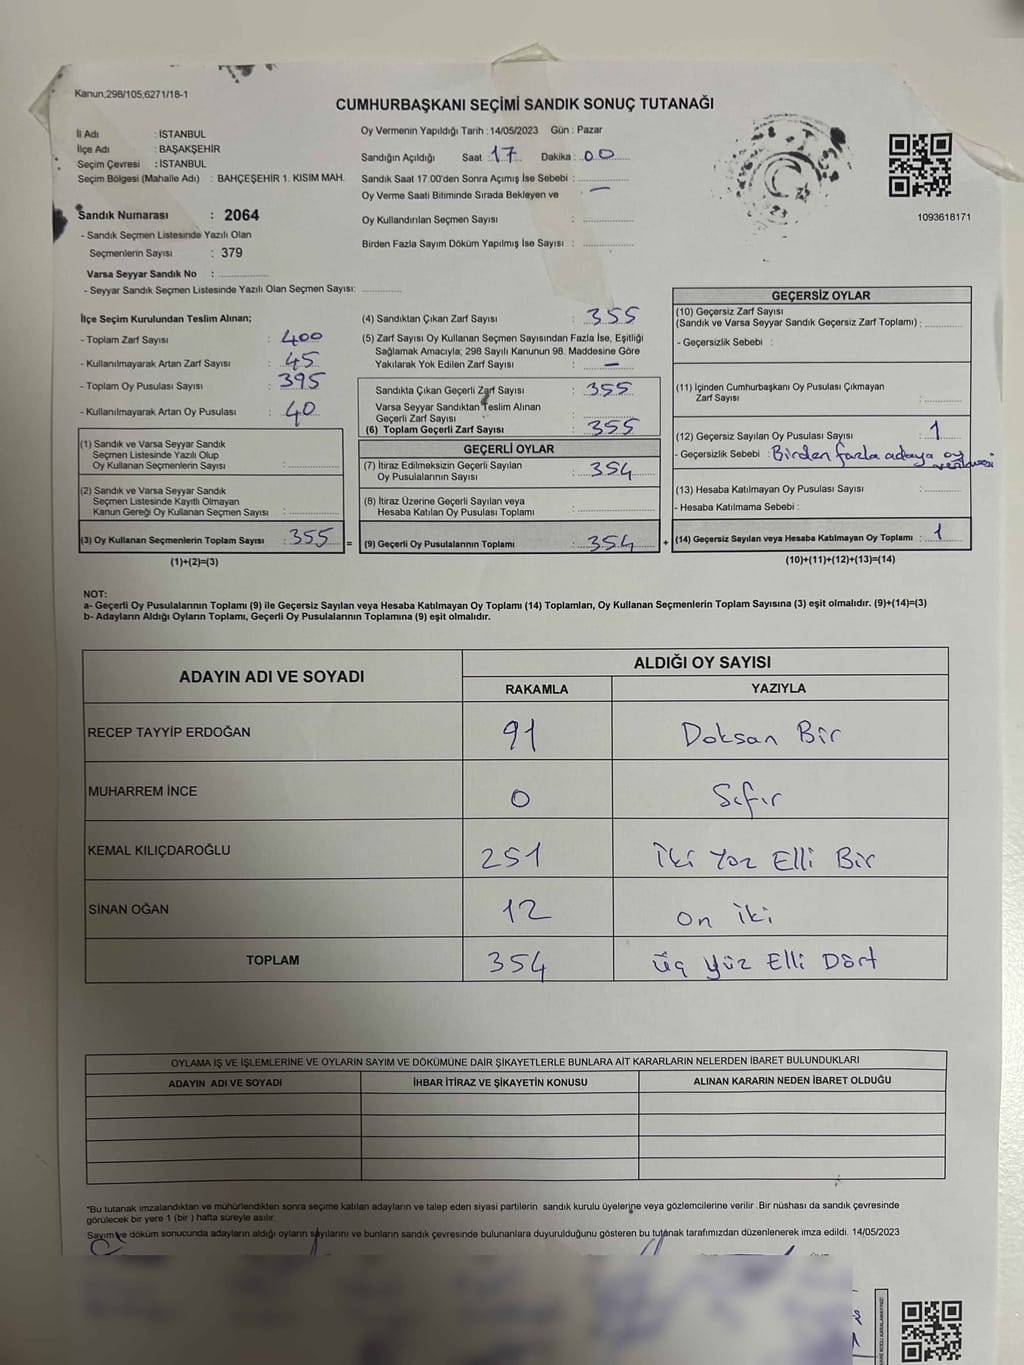 Kanun;298/105;6271/18-1
CUMHURBAŞKANI SEÇİMİ SANDIK SONUÇ TUTANAĞI
İl Adı : İSTANBUL
İlçe Adı : BAŞAKŞEHİR
Seçim Çevresi : İSTANBUL
Seçim Bölgesi (Mahalle Adı) : BAHÇEŞEHİR 1. KISIM MAH.
Sandık Numarası : 2064
- Sandık Seçmen Listesinde Yazılı Olan
Seçmenlerin Sayısı : 379
Varsa Seyyar Sandık No : ..............
- Seyyar Sandık Seçmen Listesinde Yazılı Olan Seçmen Sayısı: ............
Oy Vermenin Yapıldığı Tarih : 14/05/2023 Gün : Pazar
Sandığın Açıldığı Saat : 17 Dakika : 00
Sandık Saat 17:00'den Sonra Açımış İse Sebebi : ..............
Oy Verme Saati Bitiminde Sırada Bekleyen ve —
Oy Kullandırılan Seçmen Sayısı : ..............
Birden Fazla Sayım Döküm Yapılmış İse Sayısı : ..............
1093618171
İlçe Seçim Kurulundan Teslim Alınan;
- Toplam Zarf Sayısı : 400
- Kullanılmayarak Artan Zarf Sayısı : 45
- Toplam Oy Pusulası Sayısı : 395
- Kullanılmayarak Artan Oy Pusulası : 40
(1) Sandık ve Varsa Seyyar Sandık
Seçmen Listesinde Yazılı Olup
Oy Kullanan Seçmenlerin Sayısı : ..............
(2) Sandık ve Varsa Seyyar Sandık
Seçmen Listesinde Kayıtlı Olmayan
Kanun Gereği Oy Kullanan Seçmen Sayısı : ..............
(3) Oy Kullanan Seçmenlerin Toplam Sayısı : 355 =
(1)+(2)=(3)
(4) Sandıktan Çıkan Zarf Sayısı : 355
(5) Zarf Sayısı Oy Kullanan Seçmen Sayısından Fazla İse, Eşitliği
Sağlamak Amacıyla; 298 Sayılı Kanunun 98. Maddesine Göre
Yakılarak Yok Edilen Zarf Sayısı : —
Sandıkta Çıkan Geçerli Zarf Sayısı : 355
Varsa Seyyar Sandıktan Teslim Alınan
Geçerli Zarf Sayısı : ..............
(6) Toplam Geçerli Zarf Sayısı : 355
GEÇERLİ OYLAR
(7) İtiraz Edilmeksizin Geçerli Sayılan
Oy Pusulalarının Sayısı : 354
(8) İtiraz Üzerine Geçerli Sayılan veya
Hesaba Katılan Oy Pusulası Toplamı : ..............
(9) Geçerli Oy Pusulalarının Toplamı : 354 +
GEÇERSİZ OYLAR
(10) Geçersiz Zarf Sayısı
(Sandık ve Varsa Seyyar Sandık Geçersiz Zarf Toplamı) : ............
- Geçersizlik Sebebi :
(11) İçinden Cumhurbaşkanı Oy Pusulası Çıkmayan
Zarf Sayısı : ............
(12) Geçersiz Sayılan Oy Pusulası Sayısı : 1
- Geçersizlik Sebebi : Birden fazla adaya oy
verilmesi
(13) Hesaba Katılmayan Oy Pusulası Sayısı : ............
- Hesaba Katılmama Sebebi :
(14) Geçersiz Sayılan veya Hesaba Katılmayan Oy Toplamı : 1
(10)+(11)+(12)+(13)=(14)
NOT:
a- Geçerli Oy Pusulalarının Toplamı (9) ile Geçersiz Sayılan veya Hesaba Katılmayan Oy Toplamı (14) Toplamları, Oy Kullanan Seçmenlerin Toplam Sayısına (3) eşit olmalıdır. (9)+(14)=(3)
b- Adayların Aldığı Oyların Toplamı, Geçerli Oy Pusulalarının Toplamına (9) eşit olmalıdır.
ADAYIN ADI VE SOYADI ALDIĞI OY SAYISI
RAKAMLA YAZIYLA
RECEP TAYYİP ERDOĞAN 91 Doksan Bir
MUHARREM İNCE 0 Sıfır
KEMAL KILIÇDAROĞLU 251 İki Yüz Elli Bir
SİNAN OĞAN 12 On iki
TOPLAM 354 Üç Yüz Elli Dört
OYLAMA İŞ VE İŞLEMLERİNE VE OYLARIN SAYIM VE DÖKÜMÜNE DAİR ŞİKAYETLERLE BUNLARA AİT KARARLARIN NELERDEN İBARET BULUNDUKLARI
ADAYIN ADI VE SOYADI İHBAR İTİRAZ VE ŞİKAYETİN KONUSU ALINAN KARARIN NEDEN İBARET OLDUĞU
*Bu tutanak imzalandıktan ve mühürlendikten sonra seçime katılan adayların ve talep eden siyasi partilerin sandık kurulu üyelerine veya gözlemcilerine verilir .Bir nüshası da sandık çevresinde
görülecek bir yere 1 (bir ) hafta süreyle asılır.
Sayım ve döküm sonucunda adayların aldığı oyların sayılarını ve bunların sandık çevresinde bulunanlara duyurulduğunu gösteren bu tutanak tarafımızdan düzenlenerek imza edildi. 14/05/2023